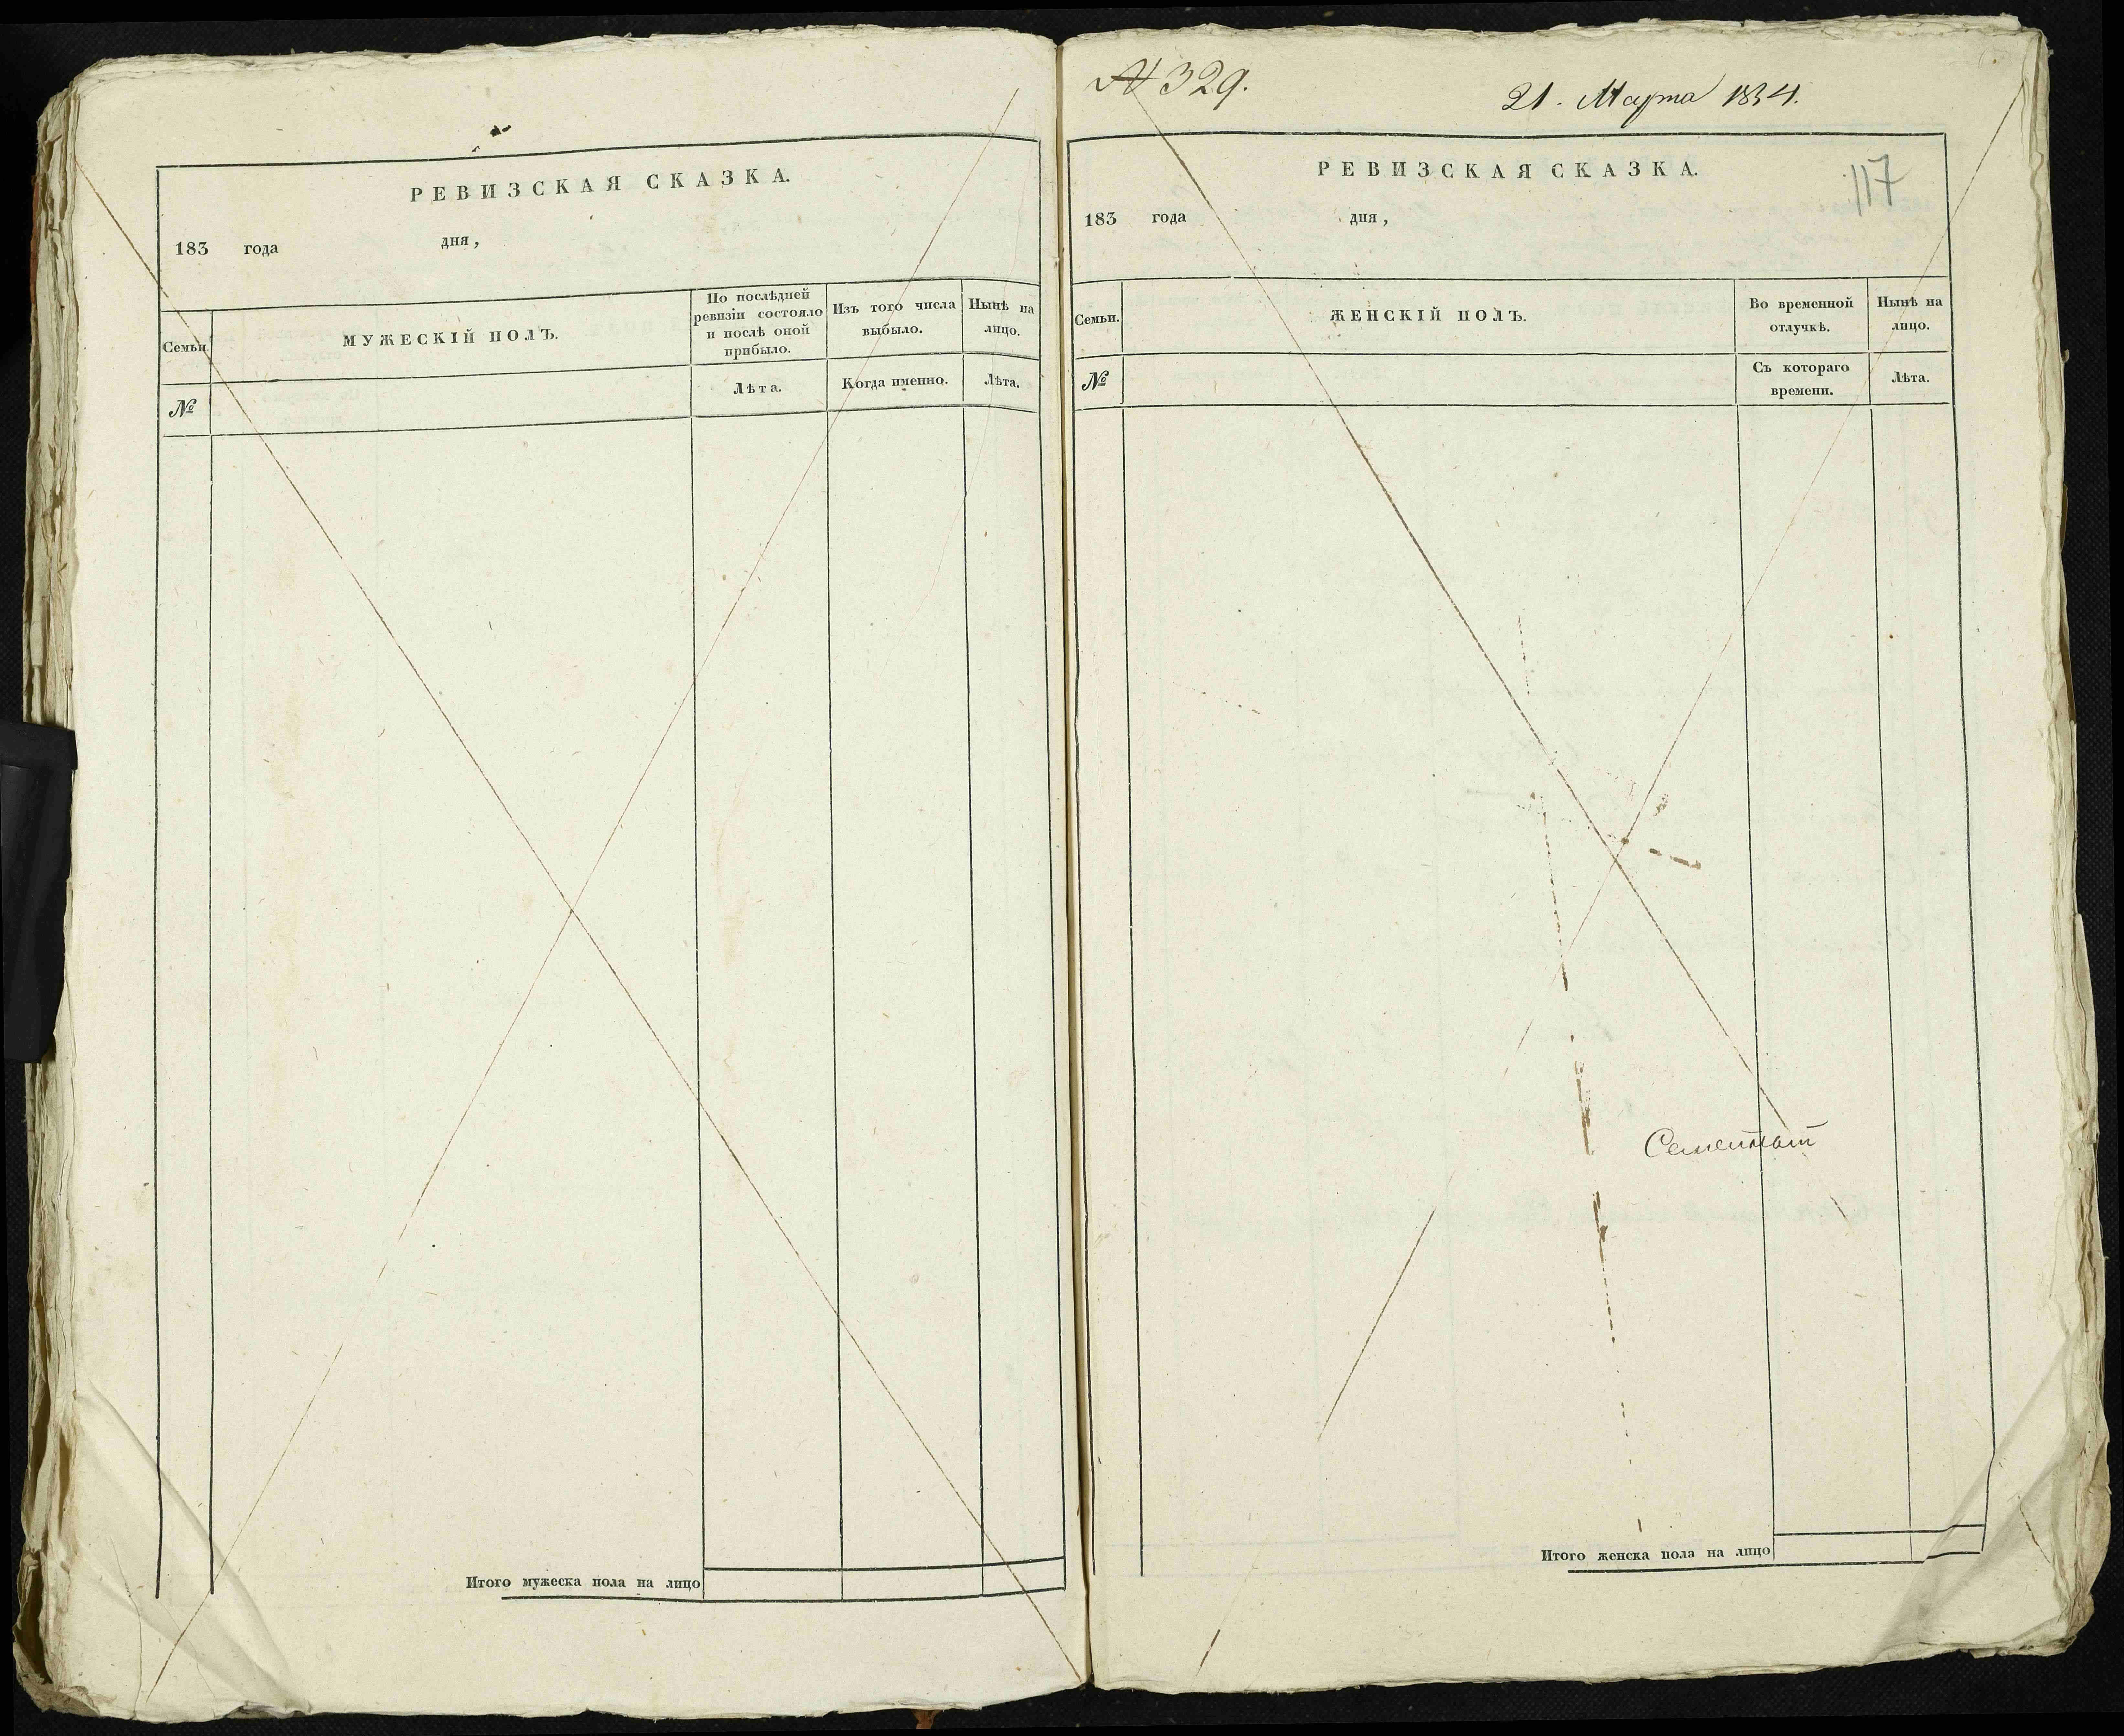 РЕВИЗСКАЯ СКАЗКА.
183 года дня,
Семьи.
МУЖЕСКІЙ ПОЛЪ.
По послѣдней
ревизіи состояло
и послѣ оной
прибыло.
Изъ того числа
выбыло.
Нынѣ на
лицо.
№
Лѣта.
Когда именно.
Лѣта.
Итого мужеска пола на лицо
№ 329.
21. Марта 1834.
РЕВИЗСКАЯ СКАЗКА.
117
183 года дня,
Семьи.
ЖЕНСКІЙ ПОЛЪ.
Во временной
отлучкѣ.
Нынѣ на
лицо.
№
Съ котораго
времени.
Лѣта.
Итого женска пола на лицо